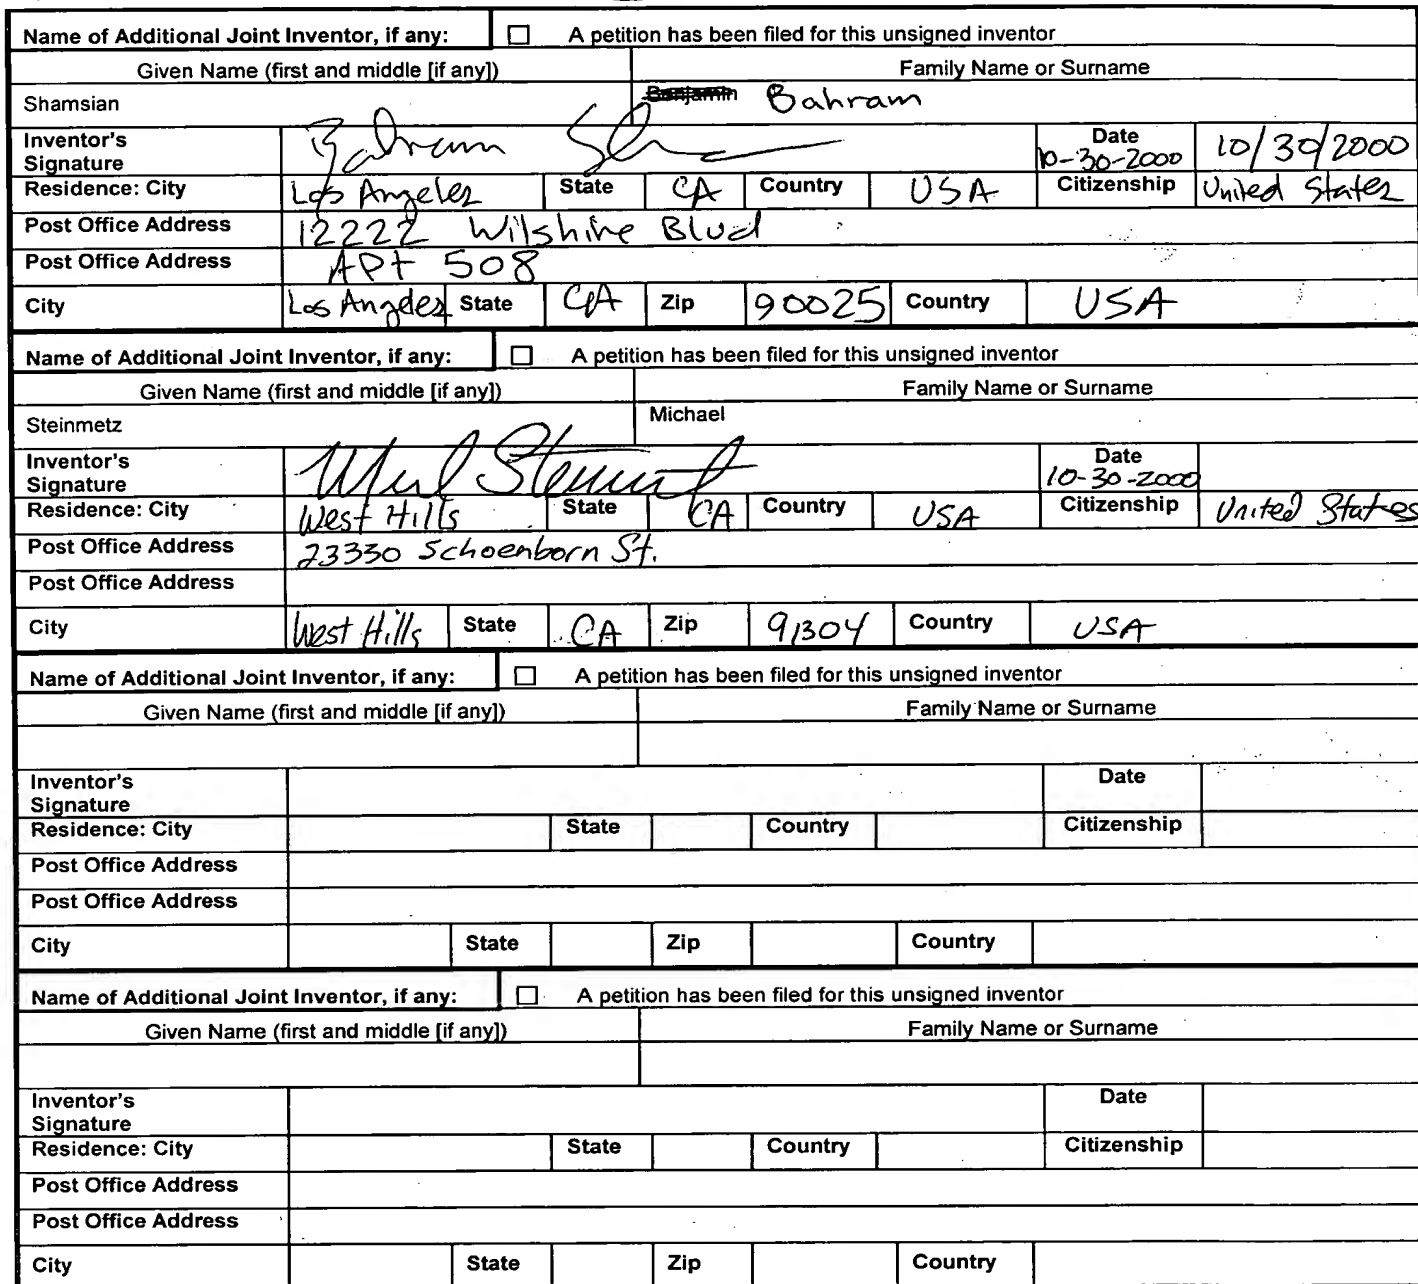 Name of Additional Joint Inventor, if any: ☐ A petition has been filed for this unsigned inventor
Given Name (first and middle [if any]) Family Name or Surname
Shamsian Benjamin Bahram
Inventor's Signature Bahram Date 10-30-2000 10/30/2000
Residence: City Los Angeles State CA Country USA Citizenship United States
Post Office Address 12222 Wilshire Blvd
Post Office Address APt 508
City Los Angeles State CA Zip 90025 Country USA
Name of Additional Joint Inventor, if any: ☐ A petition has been filed for this unsigned inventor
Given Name (first and middle [if any]) Family Name or Surname
Steinmetz Michael
Inventor's Signature Date 10-30-2000
Residence: City West Hills State CA Country USA Citizenship United States
Post Office Address 23330 Schoenborn St.
Post Office Address
City West Hills State CA Zip 91304 Country USA
Name of Additional Joint Inventor, if any: ☐ A petition has been filed for this unsigned inventor
Given Name (first and middle [if any]) Family Name or Surname
Inventor's Signature Date
Residence: City State Country Citizenship
Post Office Address
Post Office Address
City State Zip Country
Name of Additional Joint Inventor, if any: ☐ A petition has been filed for this unsigned inventor
Given Name (first and middle [if any]) Family Name or Surname
Inventor's Signature Date
Residence: City State Country Citizenship
Post Office Address
Post Office Address
City State Zip Country